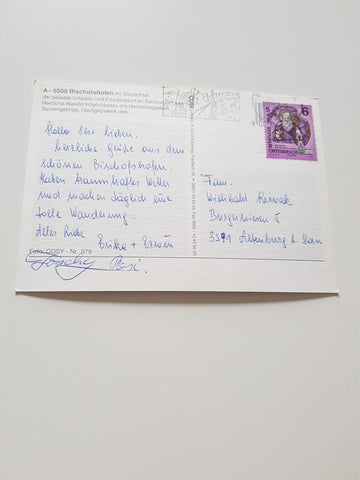 A-5500 Bischofshofen im Salzachtal,
der beliebte Urlaubs- und Erholungsort im Salzburger Land
Herrliche Wandermöglichkeiten
Tennengebirge, Hochgründeck usw.
Hallo Ihr Lieben,
herzliche Grüße aus dem
schönen Bischofshofen.
Haben traumhaftes Wetter
und machen täglich eine
tolle Wanderung.
Alles Liebe Erika + Erwin
Foto: COSY - Nr. 979
Rosi
6
ÖSTERREICH
Fam.
Willibald
3591 Altenburg b. Horn